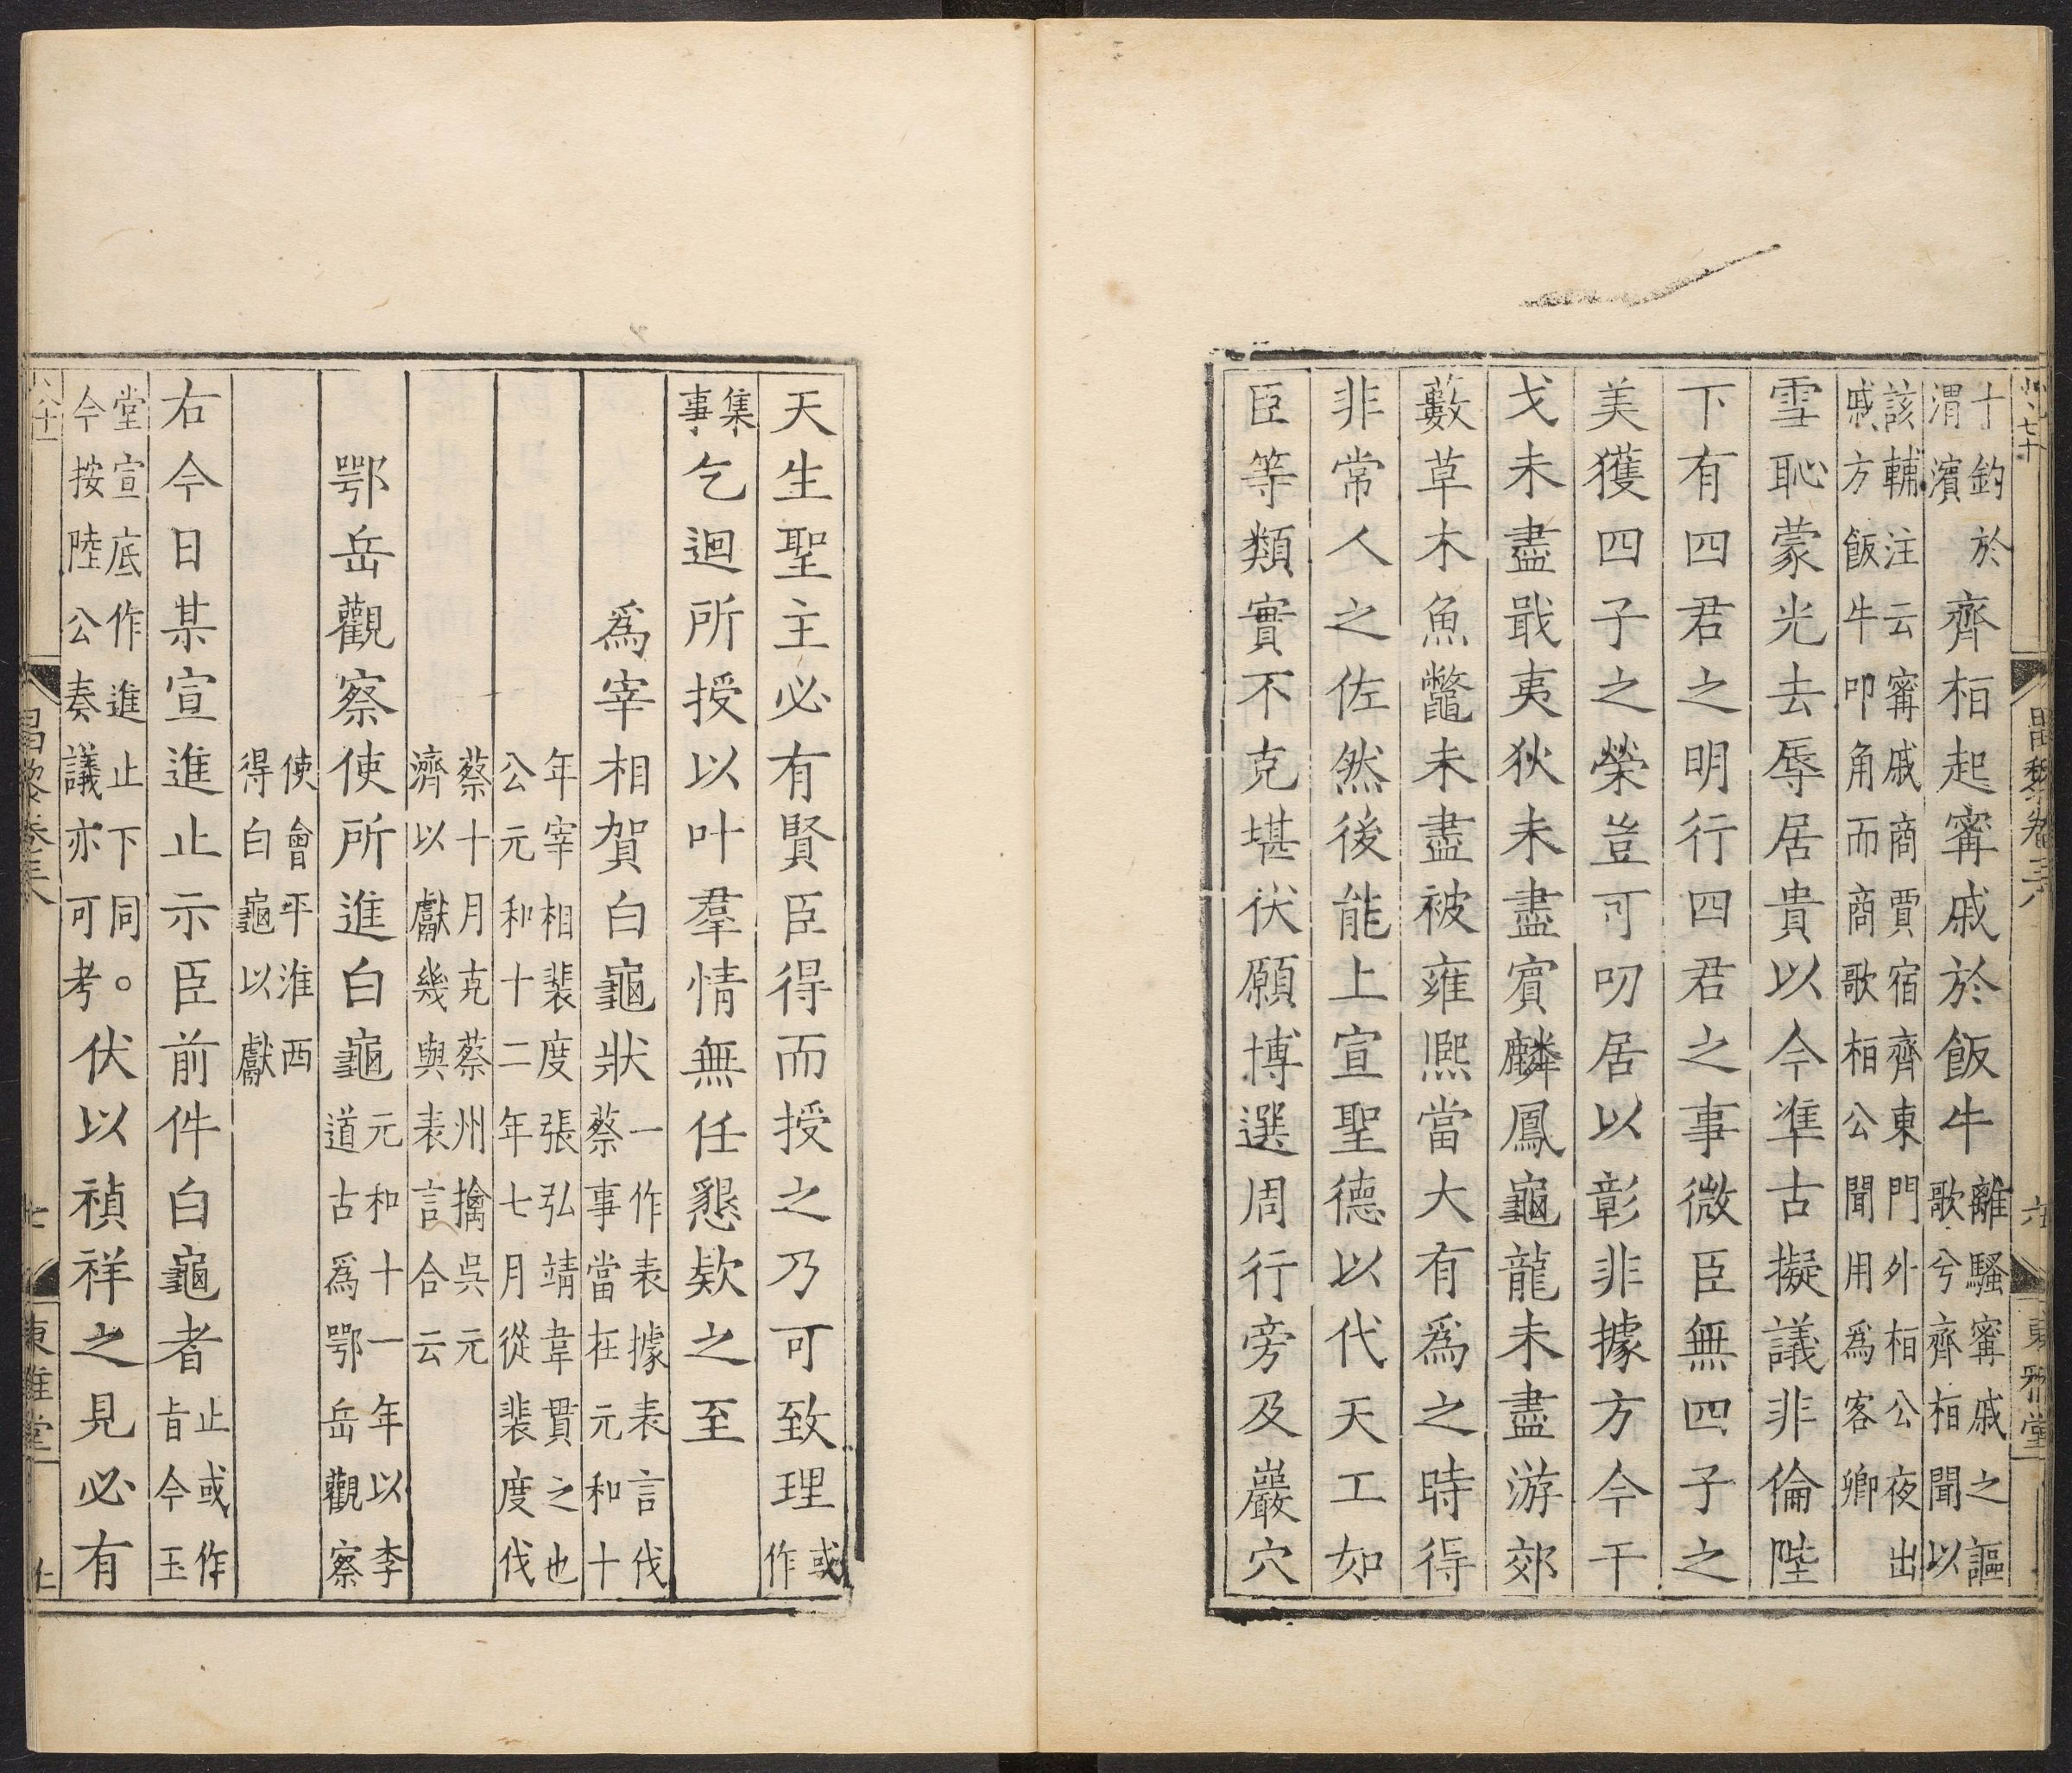 昌黎卷三十八 六 東雅堂
十釣於
渭濱
齊桓起寗戚於飯牛
離騷寗戚之謳
歌兮齊桓聞以
該輔注云寗戚商賈宿齊東門外桓公夜出
戚方飯牛叩角而商歌桓公聞用爲客卿
雪恥蒙光去辱居貴以今準古擬議非倫陛
下有四君之明行四君之事微臣無四子之
美獲四子之榮豈可叨居以彰非據方今干
戈未盡戢夷狄未盡賓麟鳳龜龍未盡游郊
藪草木魚鼈未盡被雍熙當大有爲之時得
非常人之佐然後能上宣聖德以代天工如
臣等類實不克堪伏願博選周行旁及巖穴
天生聖主必有賢臣得而授之乃可致理
或
作
集
事
乞迴所授以叶羣情無任懇欵之至
爲宰相賀白龜狀
一作表據表言伐
蔡事當在元和十
年宰相裴度張弘靖韋貫之也
公元和十二年七月從裴度伐
蔡十月克蔡州擒吳元
濟以獻幾與表言合云
鄂岳觀察使所進白龜
元和十一年以李
道古爲鄂岳觀察
使會平淮西
得白龜以獻
右今日某宣進止示臣前件白龜者
止或作
旨今玉
堂宣底作進止下同。
今按陸公奏議亦可考
伏以禎祥之見必有
昌黎卷三十八 七 東雅堂